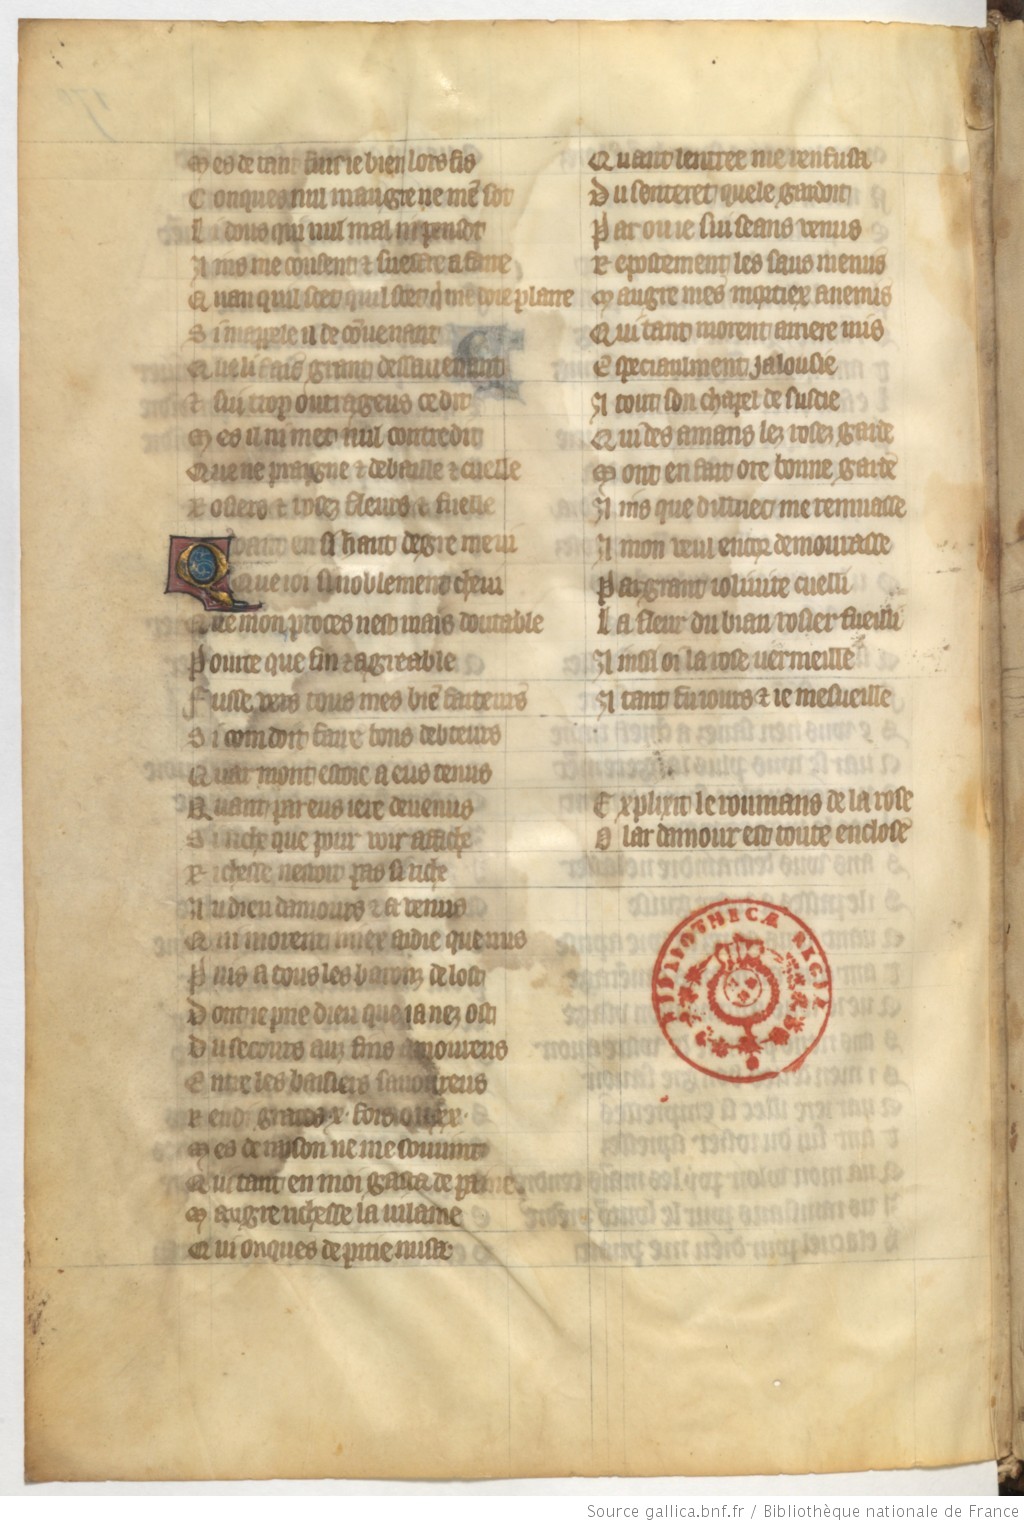 M es de tant fui ie bien lors fis
C onques nul maugre ne mē sot
L i dous qui nul mal ni pensot
A ins me consent & sueffre a faire
Q uan quil scet quil scet q̄ me doie plaire
S i mappele il de cōuenant
Q ue li fais grant dessauenant
& sui trop outrageus ce dit
M es il ni met nul contredit
Q ue ne praigne & debaille & cuelle
R osiers & rosez fleurs & fuelle
Q uant en si haut degre me vi
Q ue ioi si noblement cheui
Q ue mon proces nest mais doutable
P ource que fin & agreable
F usse vers tous mes biē faiteurs
S i com doit faire bons debteurs
Q uar mont estoie a eus tenus
Q uant par eus iere deuenus
S i riche que pour voir affiche
R ichesse nestoit pas si riche
A u dieu damours & a venus
Q ui morent miex aidie que nus
P uis a tous les barons de lost
D ont ie prie dieu que ia nez ost
D u secours auz fins amoureus
E ntre les baisiers sauoureus
R endi graces .x. fois ou .xx.
M es de raison ne me souuint
Q ui tant en moi gasta de paine
M augre richesse la vilaine
Q ui onques de pitie nusa
Q uant lentree me renfusa
D u senteret quele gardoit
P ar ou ie sui seans venus
R epostement les saus menus
M augre mes mortiex anemis
Q ui tant morent arriere mis
E speciaulment Jalousie
A tout son chapel de sussie
Q ui des amans lez rosez garde
M out en fait ore bonne garde
A ins que dilluec me remuasse
A mon veul encor demourasse
P ar grant iolivite cuelli
L a fleur du biau rosier fueilli
A insi oi la rose vermeille
A tant fu iours & ie mesueille
E xplixit le roumans de la rose
O u lart damour est toute enclose
BIBLIOTHECÆ REGIÆ
Source gallica.bnf.fr / Bibliothèque nationale de France